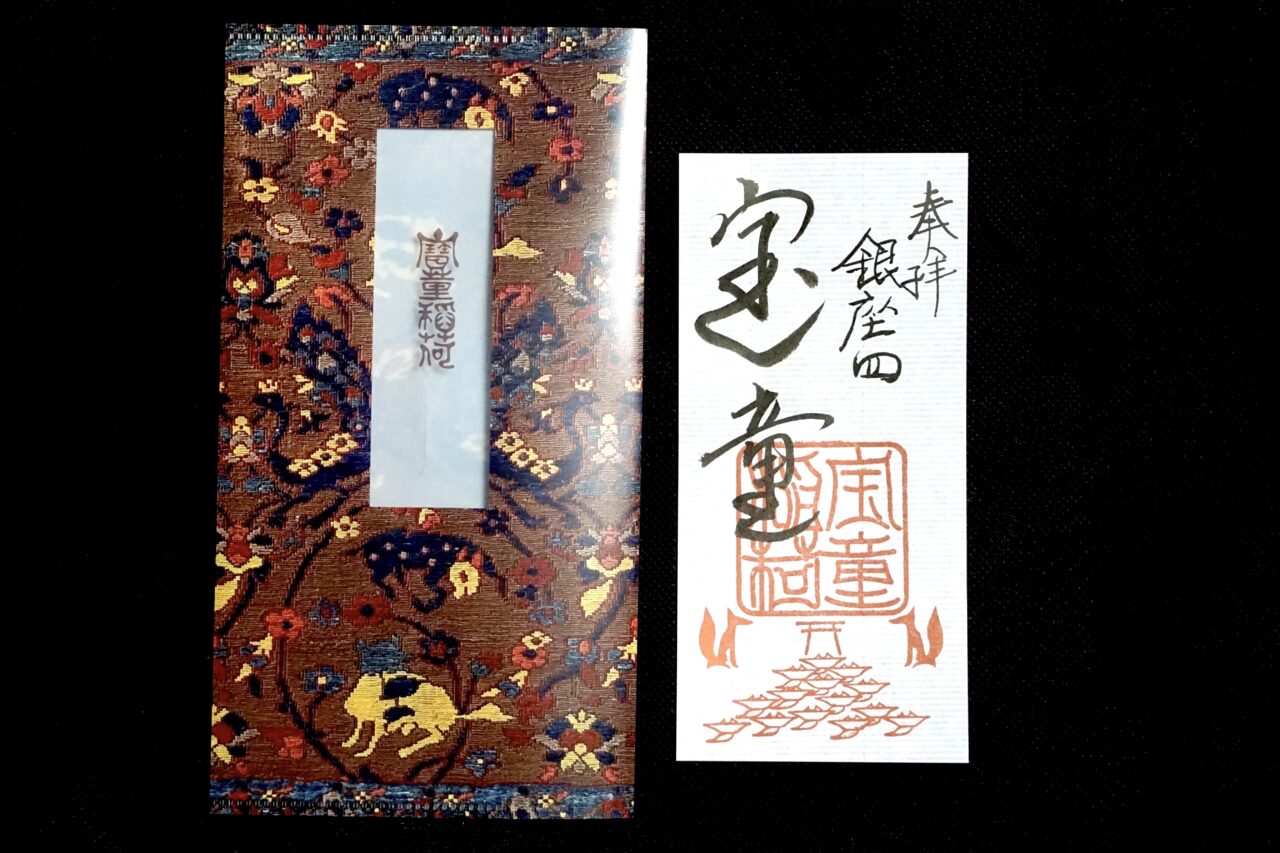 寳童稲荷
奉拝
銀座四
宝童
宝童
稲荷